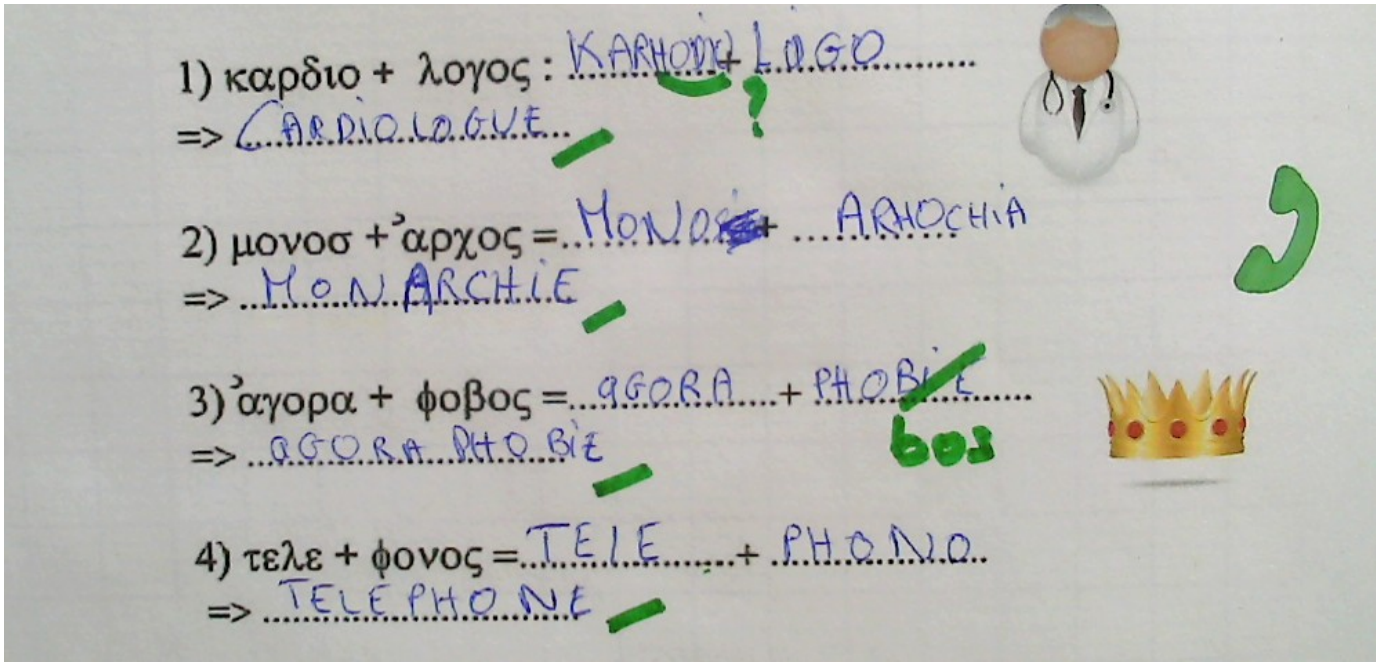 1) καρδιο + λογος : KARHODIO + LOGO
?
=> CARDIOLOGUE
2) μονοσ + ᾽αρχος = MONO + ARHOCHiA
=> MONARCHiE
3) ᾽αγορα + φοβος = aGORA + PHOBiE
bos
=> aGORA PHOBiE
4) τελε + φονος = TELE + PHONO
=> TELEPHONE